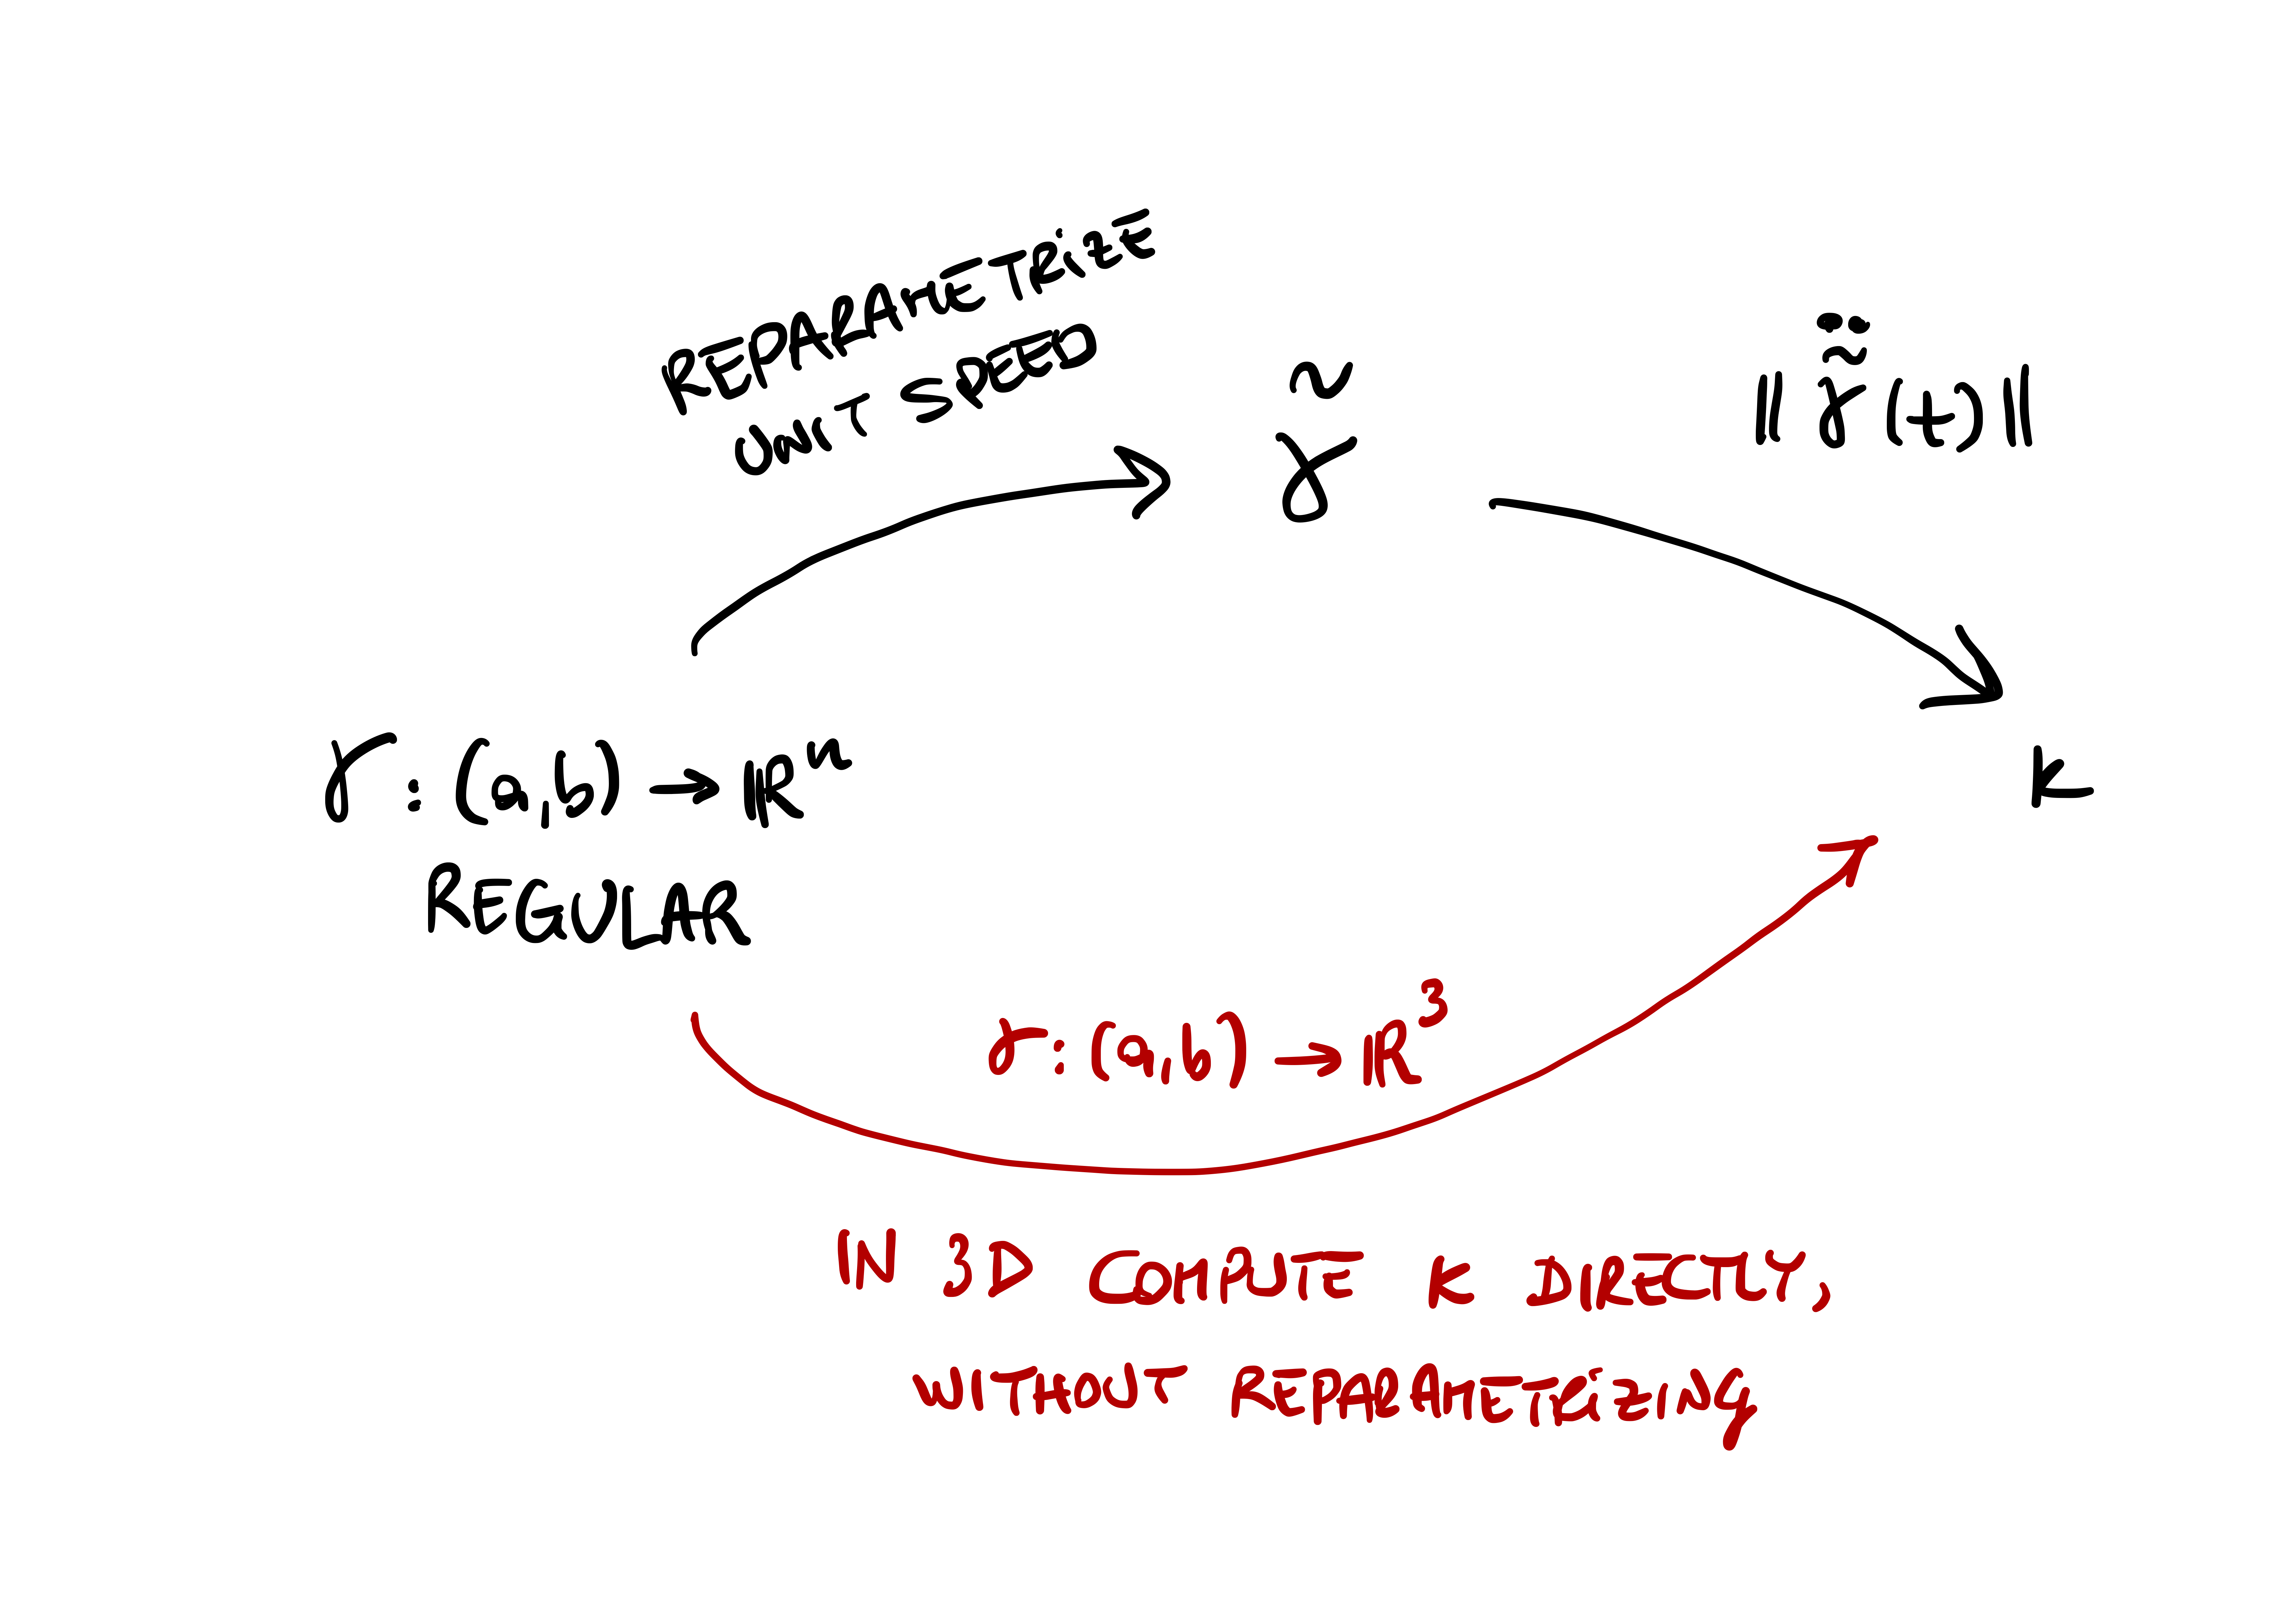 REPARAMETRIZE
UNIT SPEED
γ̃
‖γ̃̈(t)‖
γ : (a,b) → ℝⁿ
REGULAR
κ
γ : (a,b) → ℝ³
IN 3D COMPUTE κ DIRECTLY,
WITHOUT REPARAMETRIZING